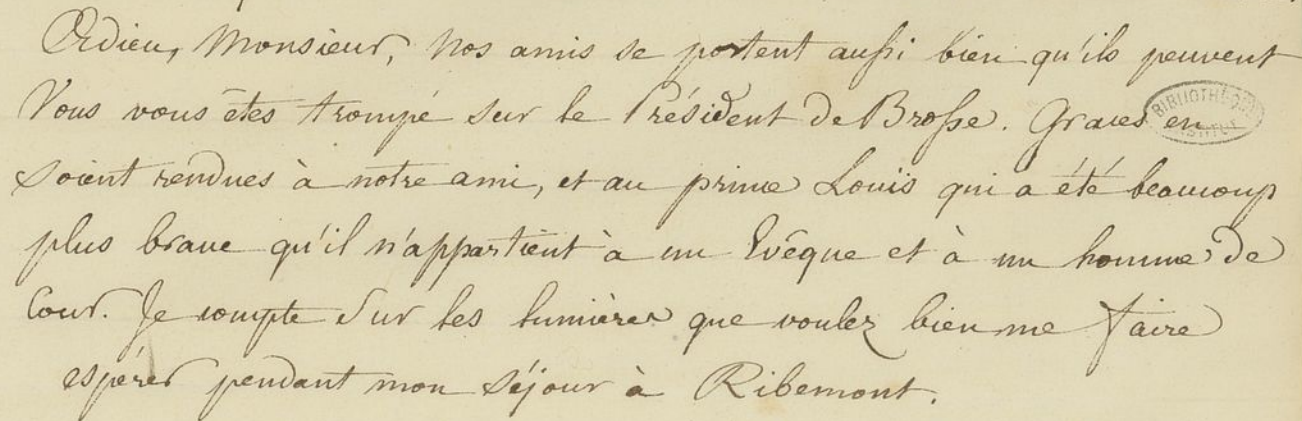 Adieu, Monsieur, Nos amis se portent aussi bien qu'ils peuvent
Vous vous êtes trompé sur le Président de Brosse. Graces en
soient rendues à notre ami, et au prince Louis qui a été beaucoup
plus brave qu'il n'appartient à un Evêque et à un homme de
Cour. Je compte sur les lumières que voulez bien me faire
espérer pendant mon séjour à Ribemont.